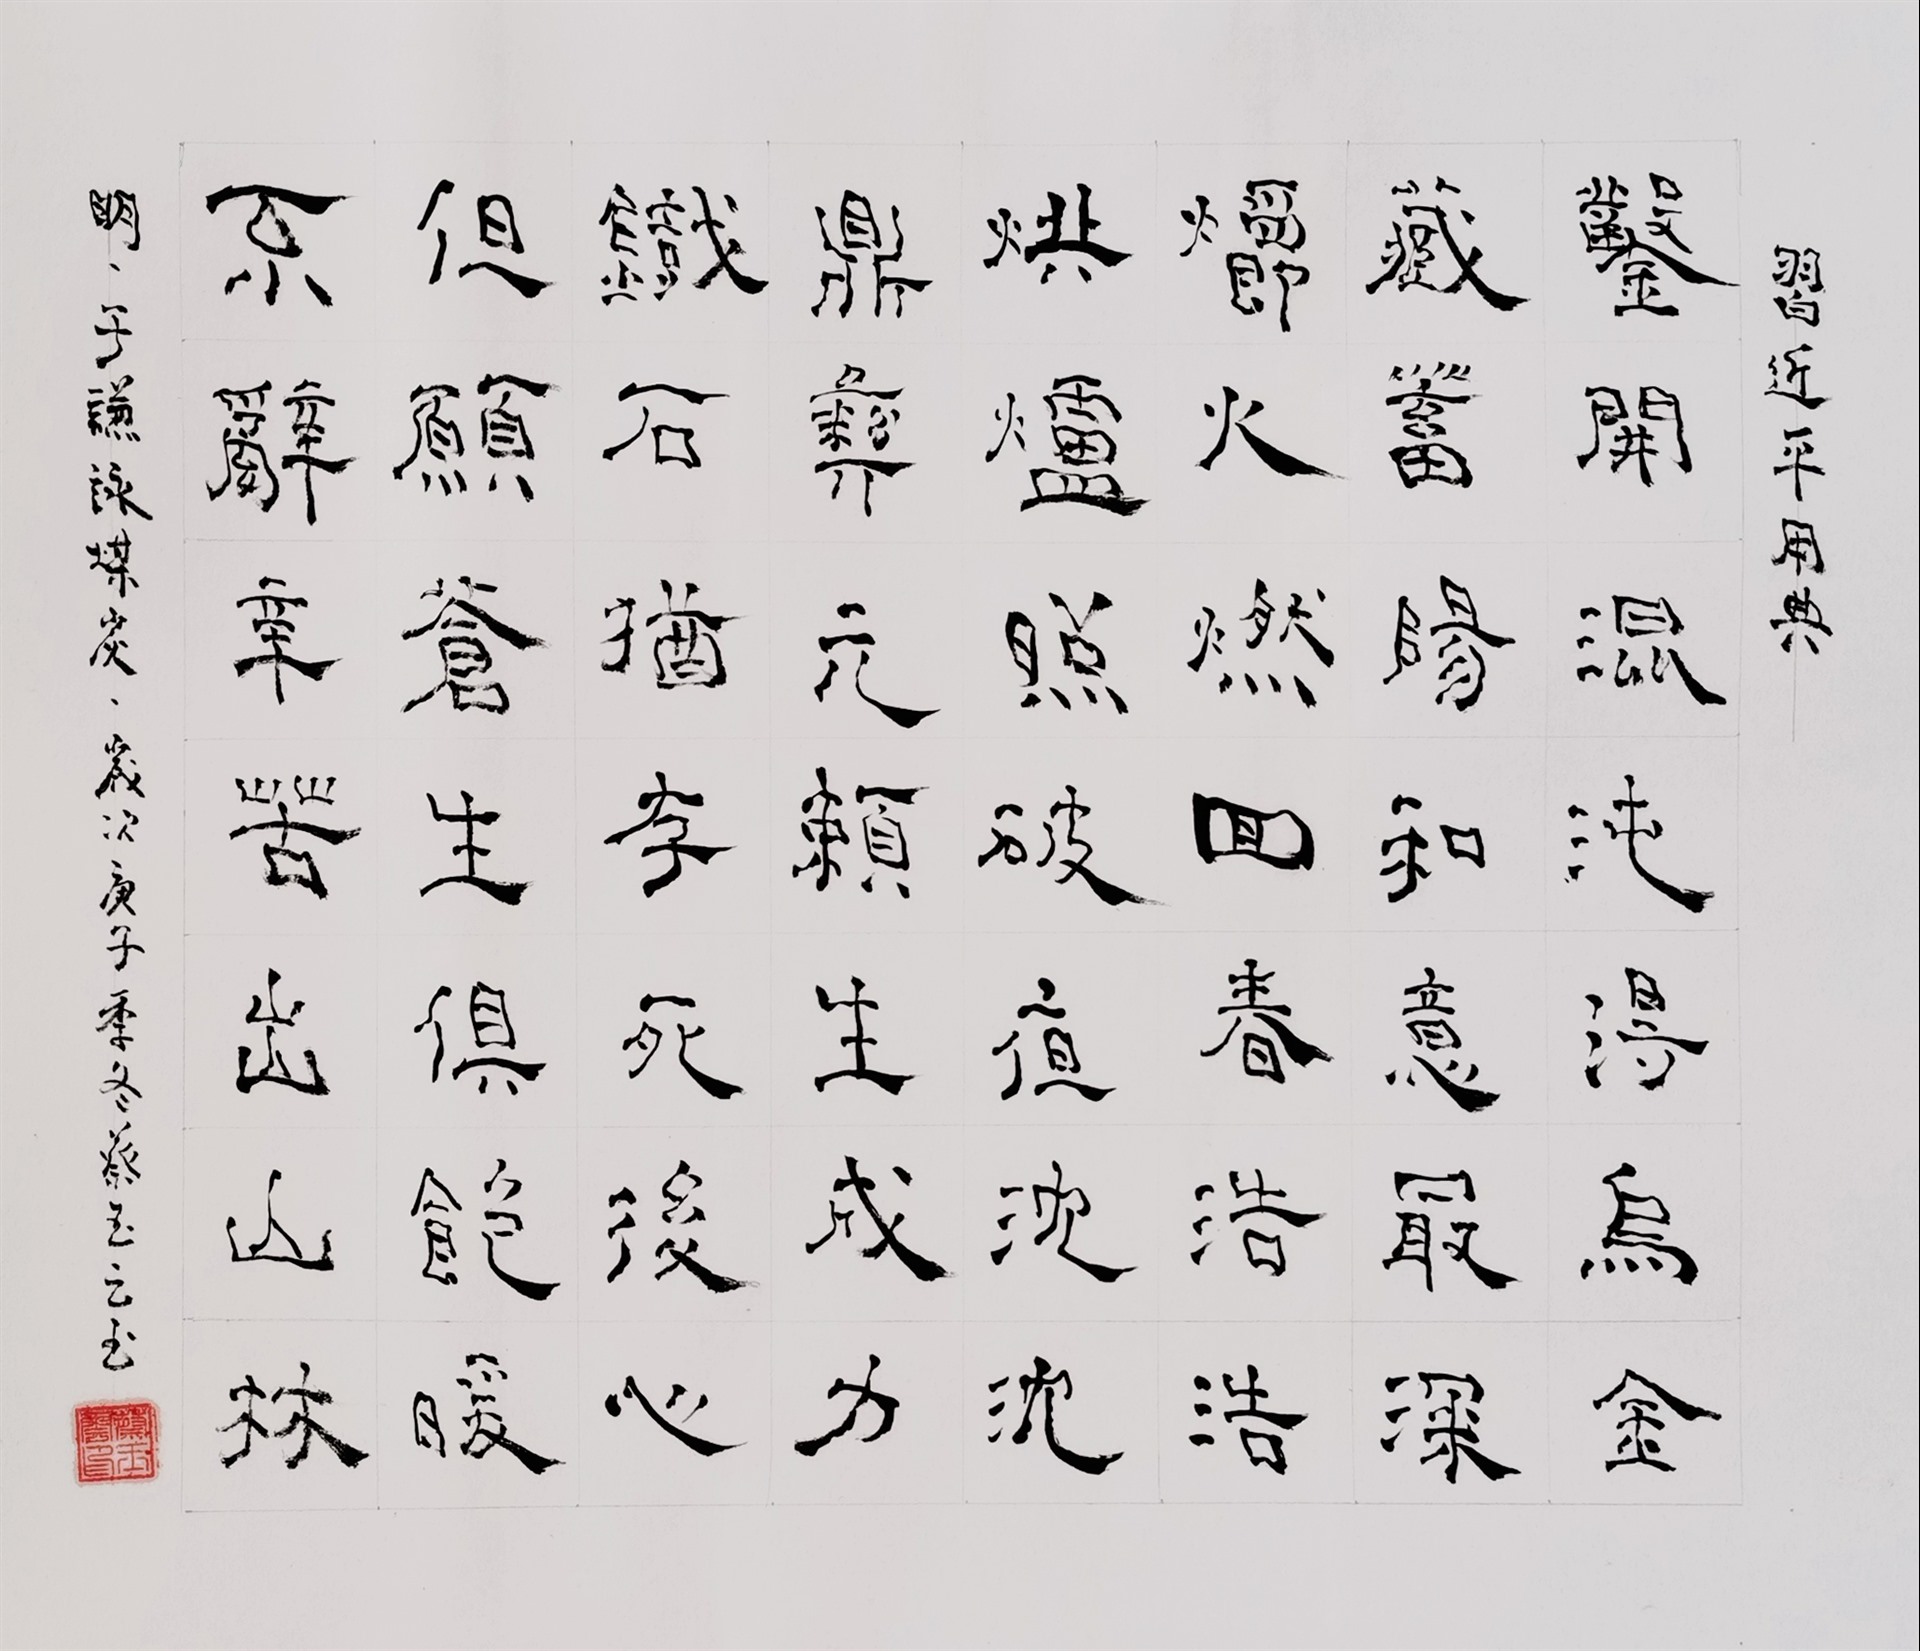 習近平用典
鑿開混沌得烏金
藏蓄陽和意最深
爝火燃回春浩浩
烘爐照破夜沈沈
鼎彝元賴生成力
鐵石猶存死後心
但願蒼生俱飽暖
不辭辛苦出山林
明、于謙詠煤炭、歲次庚子季冬蔡玉云書
蔡玉雲印